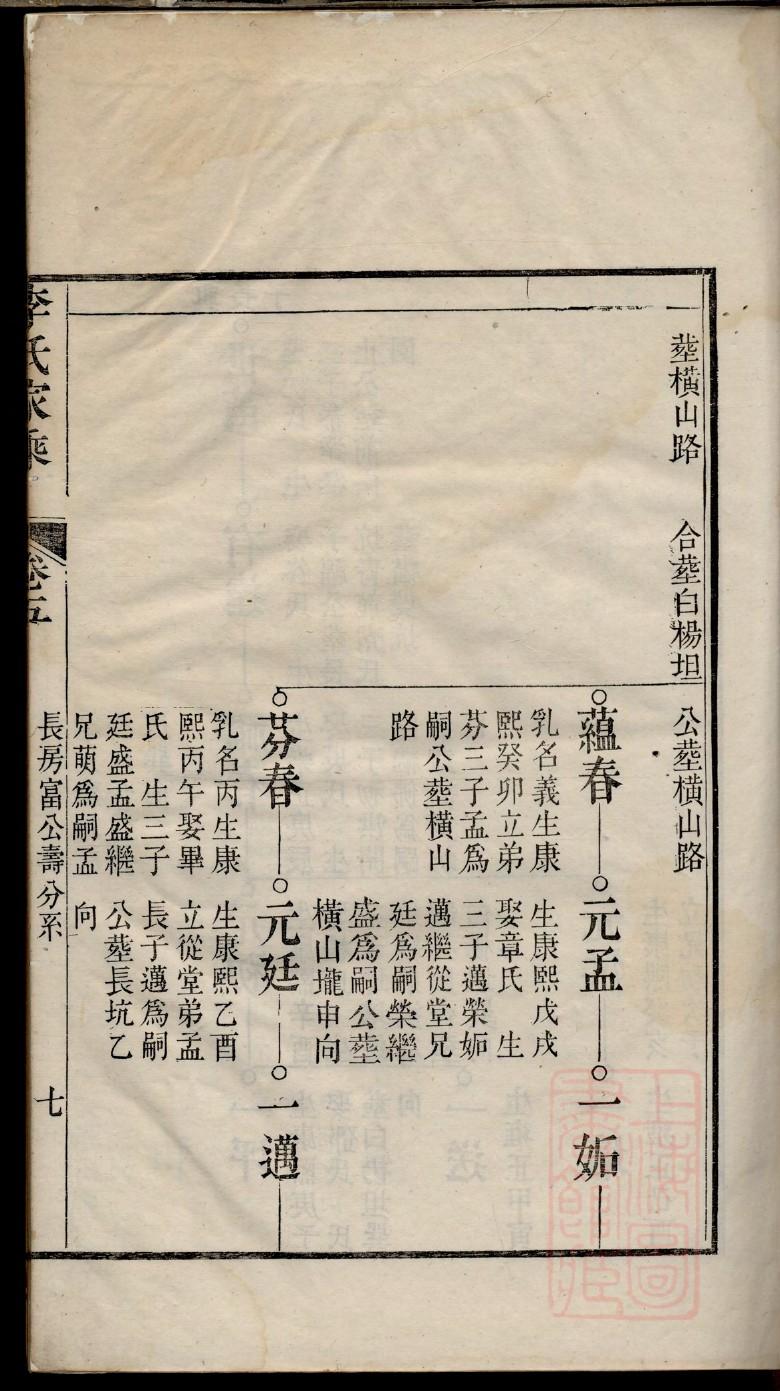 塟橫山路
合塟白楊坦
公塟橫山路
蘊春
乳名義生康
熙癸卯立弟
芬三子孟爲
嗣公塟橫山
路
元孟
生康熙戊戌
娶章氏 生
三子邁榮妬
邁繼從堂兄
廷爲嗣榮繼
盛爲嗣公塟
橫山壠申向
一妬
芬春
乳名丙生康
熙丙午娶畢
氏 生三子
廷盛孟盛繼
兄萌爲嗣孟
元廷
生康熙乙酉
立從堂弟孟
長子邁爲嗣
公塟長坑乙
向
一邁
長房富公壽分系 七
李氏家乘 卷五